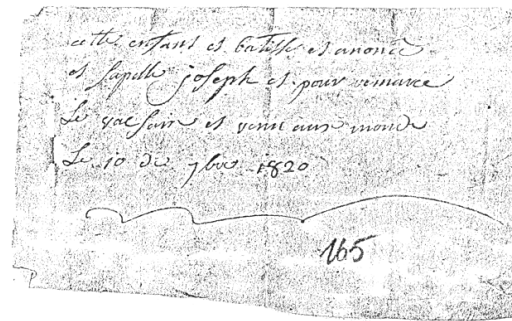 cette enfant et batisse et anoncé
et sapelle joseph et pour remarce
Le vaesaire et venu aux monde
Le 10 de 7bre 1820
165